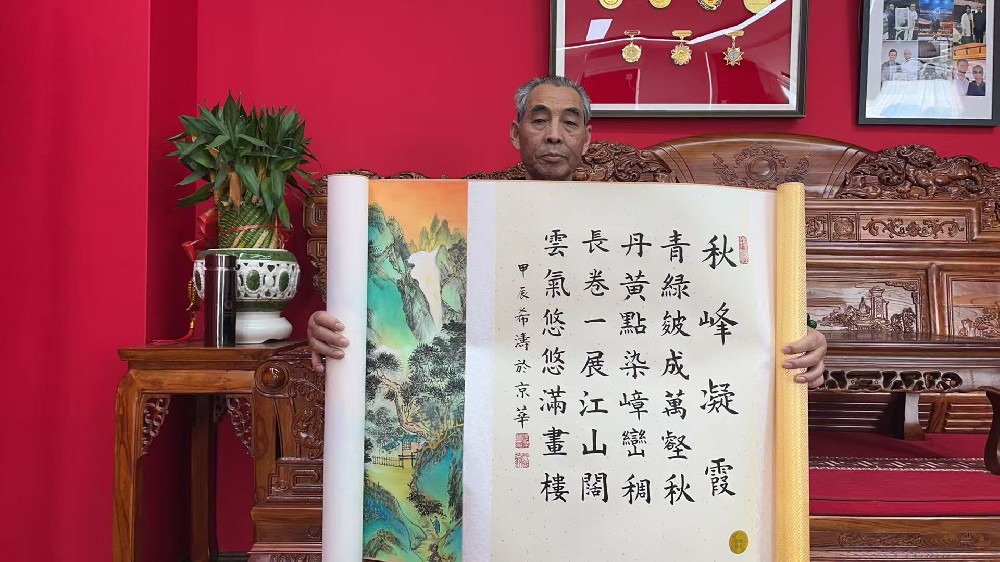 秋峰凝霞
青綠皴成萬壑秋
丹黃點染嶂巒稠
長卷一展江山闊
雲氣悠悠滿畫樓
甲辰希濤於京華